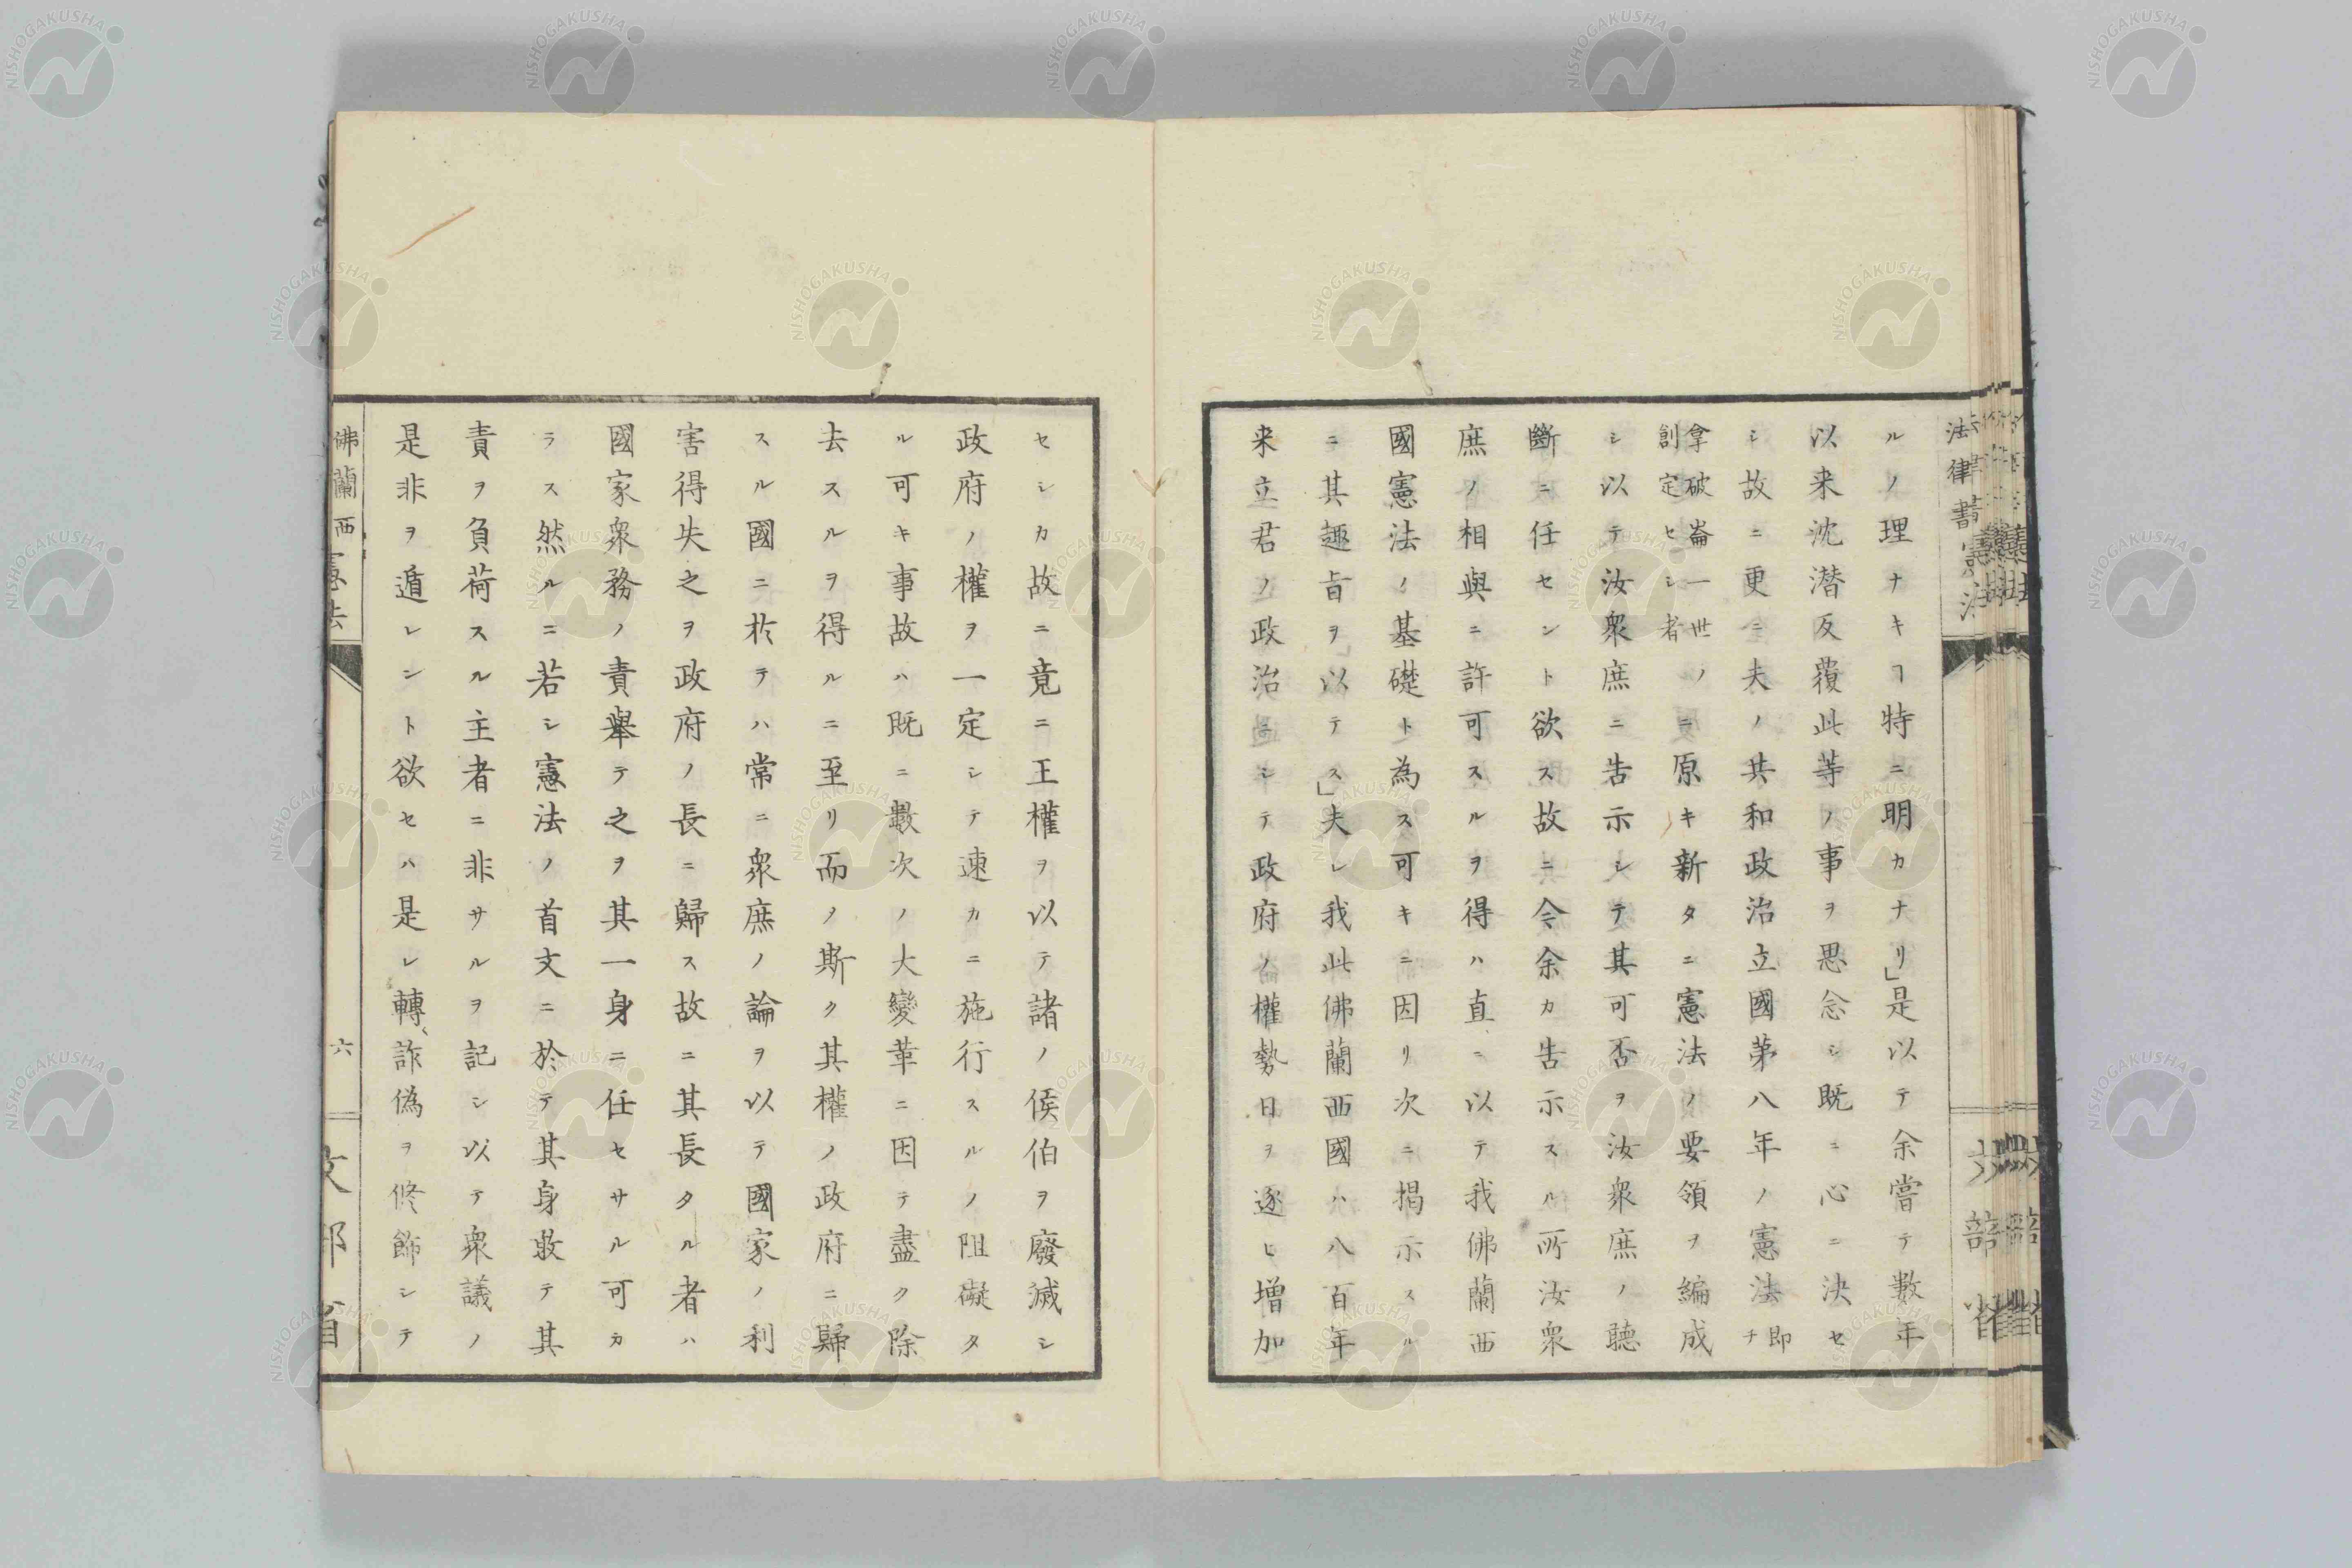 ルノ理ナキヿ特ニ明カナリ」是以テ余嘗テ數年
以来沈潜反覆此等ノ事ヲ思念シ既ニ心ニ決セ
シ故ニ更ニ夫ノ共和政治立國第八年ノ憲法即チ
拿破崙一世ノ創定セシ者ニ原キ新タニ憲法ノ要領ヲ編成
シ以テ汝衆庶ニ告示シテ其可否ヲ汝衆庶ノ聽
斷ニ任セント欲ス故ニ今余カ告示スル所汝衆
庶ノ相與ニ許可スルヲ得ハ直ニ以テ我佛蘭西
國憲法ノ基礎ト為ス可キニ因リ次ニ掲示スル
ニ其趣旨ヲ以テス」夫レ我此佛蘭西國ハ八百年
来立君ノ政治ニシテ政府ノ權勢日ヲ逐ヒ増加
セシカ故ニ竟ニ王權ヲ以テ諸ノ侯伯ヲ廢滅シ
政府ノ權ヲ一定シテ速カニ施行スルノ阻礙タ
ル可キ事故ハ既ニ數次ノ大變革ニ因テ盡ク除
去スルヲ得ルニ至リ而ノ斯ク其權ノ政府ニ歸
スル國ニ於テハ常ニ衆庶ノ論ヲ以テ國家ノ利
害得失之ヲ政府ノ長ニ歸ス故ニ其長タル者ハ
國家衆務ノ責舉テ之ヲ其一身ニ任セサル可カ
ラス然ルニ若シ憲法ノ首文ニ於テ其身敢テ其
責ヲ負荷スル主者ニ非サルヲ記シ以テ衆議ノ
是非ヲ遁レント欲セハ是レ轉、詐偽ヲ修飾シテ
佛蘭西憲法 六 文部省
NISHOGAKUSHA